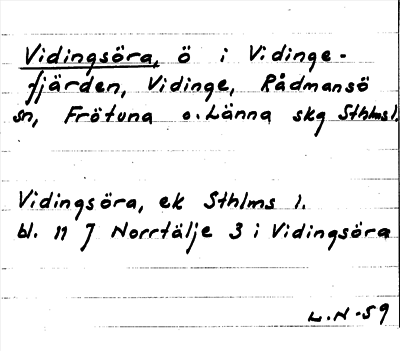 Vidingsöra, ö i Vidinge-
fjärden, Vidinge, Rådmansö
sn, Frötuna o. Länna skg Sthlms l.
Vidingsöra, ek Sthlms l.
bl. 11 J Norrtälje 3 i Vidingsöra
L.N-59